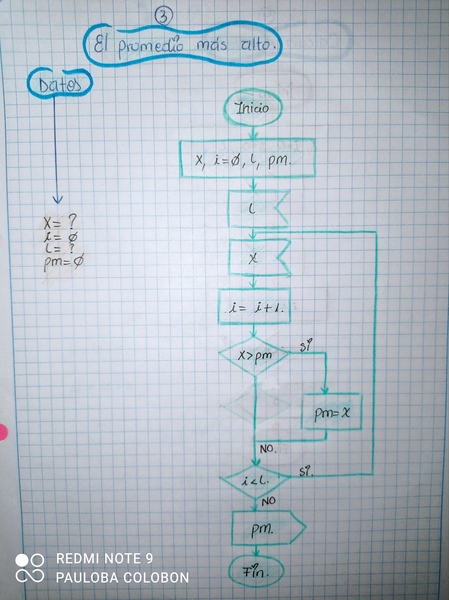 3
El promedio más alto.
Datos
Inicio
X, i=ø, L, pm.
L
X
X= ?
i= ø
L= ?
pm=ø
i= i+1.
X>pm
Sí
pm=X
NO.
i<L.
Sí.
NO
pm.
Fin.
REDMI NOTE 9
PAULOBA COLOBON